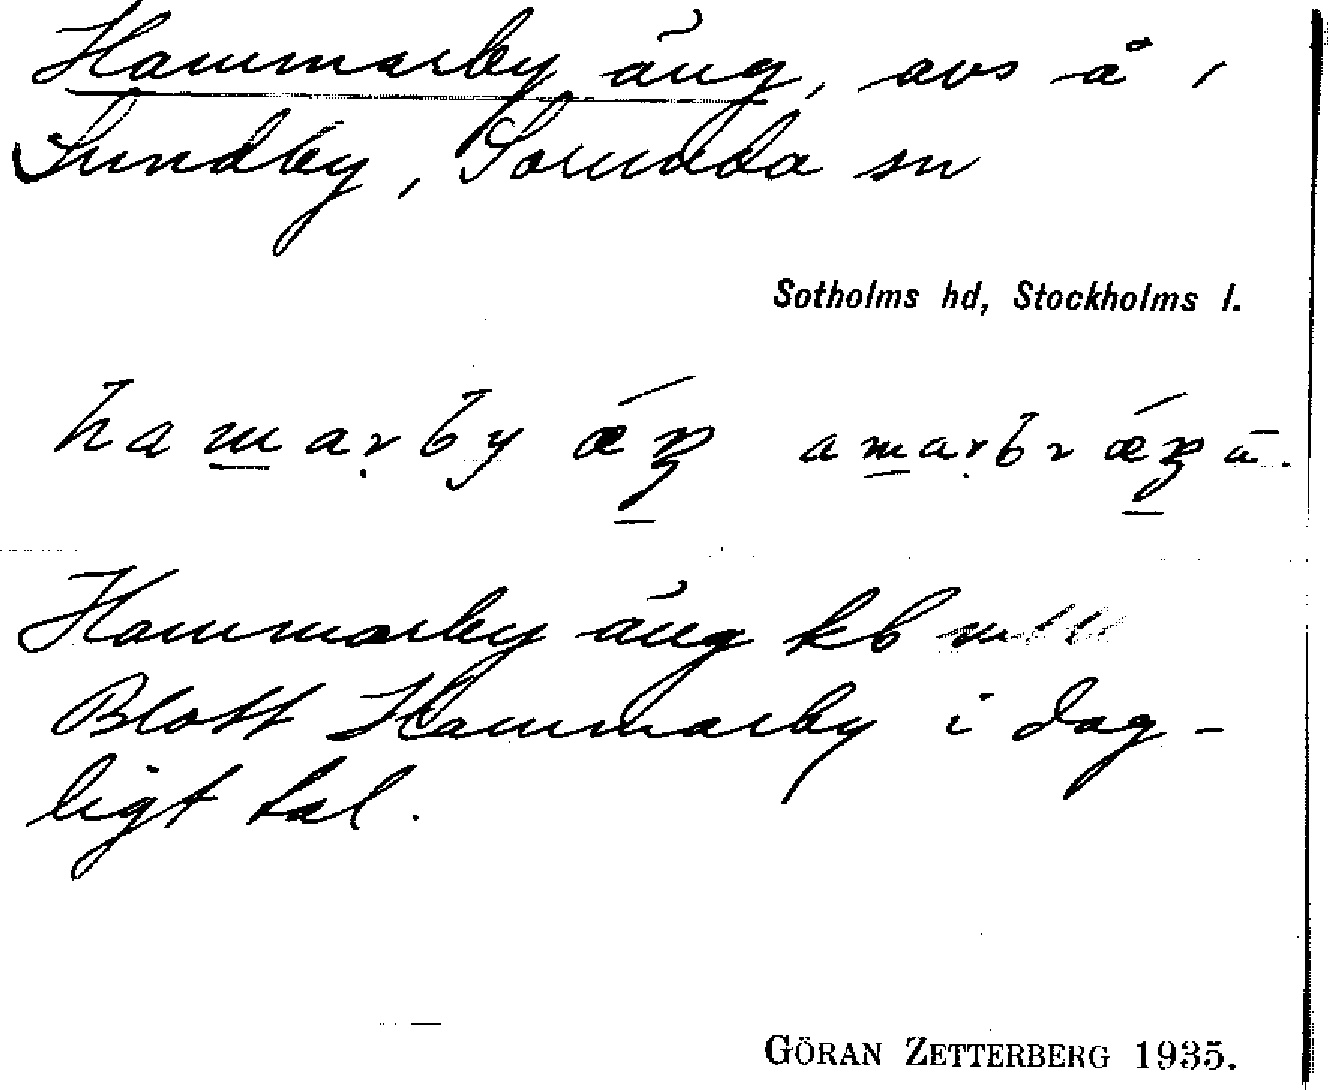 Hammarby äng, avs å,
Sundby, Sorunda sn
Sotholms hd, Stockholms l.
Hammarby äng kb
Blott Hammarby i dag-
ligt tal.
GÖRAN ZETTERBERG 1935.